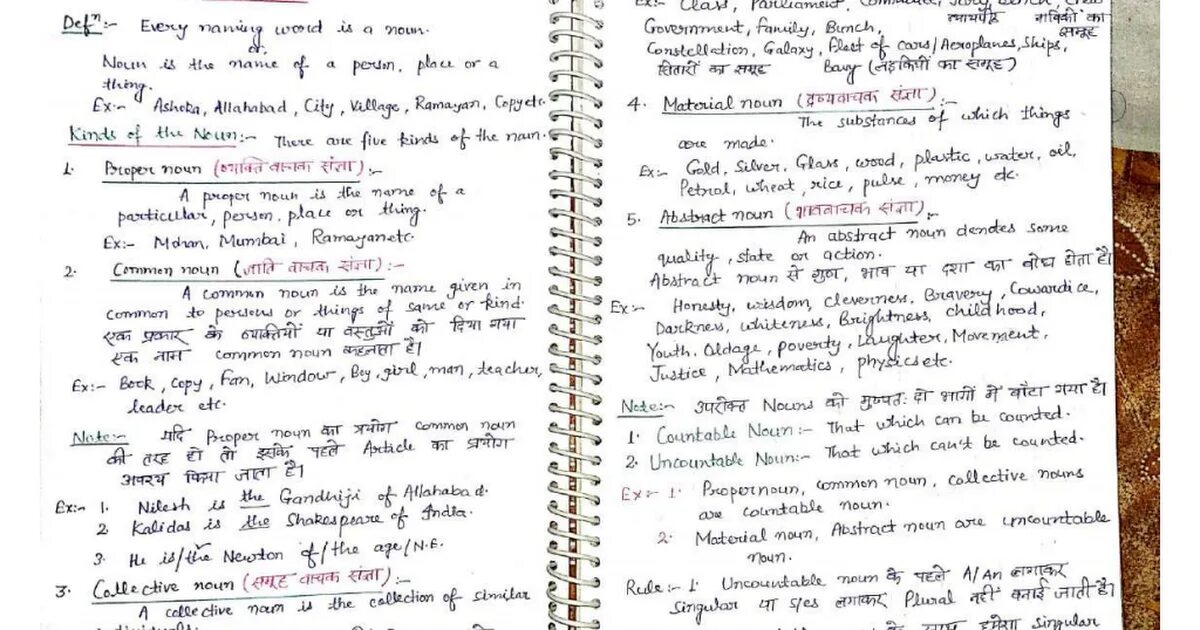 Defⁿ:- Every naming word is a noun.
or,
Noun is the name of a person, place or a
thing.
Ex:- Ashoka, Allahabad, City, Village, Ramayan, Copy etc.
Kinds of the Noun:- There are five kinds of the noun.
1. Proper noun (व्यक्ति वाचक संज्ञा):-
A proper noun is the name of a
particular, person, place or thing.
Ex:- Mohan, Mumbai, Ramayan etc.
2. Common noun (जाति वाचक संज्ञा):-
A common noun is the name given in
common to persons or things of same or kind.
एक प्रकार के व्यक्तियों या वस्तुओं को दिया गया
एक नाम common noun कहलाता है।
Ex:- Book, Copy, Fan, Window, Boy, girl, man, teacher,
leader etc.
Note:- यदि Proper noun का प्रयोग common noun
की तरह हो तो इसके पहले Article का प्रयोग
अवश्य किया जाता है।
Ex:- 1. Nilesh is the Gandhiji of Allahabad.
2. Kalidas is the Shakespeare of India.
3. He is/the Newton of/the age/N.E.
3. Collective noun (समूह वाचक संज्ञा):-
A collective noun is the collection of similar
Ex:- Class, Parliament, Committee, Jury, Bench, Crew
न्यायपीठ नाविकों का
समूह
Government, Family, Bunch,
Constellation, Galaxy, Fleet of cars/Aeroplanes, Ships,
सितारों का समूह Bavy (लड़कियों का समूह)
4. Material noun (द्रव्यवाचक संज्ञा):-
The substances of which things
are made.
Ex:- Gold, Silver, Glass, wood, plastic, water, oil,
Petrol, wheat, rice, pulse, money etc.
5. Abstract noun (भाववाचक संज्ञा):-
An abstract noun denotes some
quality, state or action.
Abstract noun से गुण, भाव या दशा का बोध होता है।
Ex:- Honesty, wisdom, cleverness, Bravery, Cowardice,
Darkness, whiteness, Brightness, childhood,
Youth, Oldage, poverty, Laughter, Movement,
Justice, Mathematics, physics etc.
Note:- उपरोक्त Nouns को मुख्यतः दो भागों में बाँटा गया है।
1. Countable Noun:- That which can be counted.
2. Uncountable Noun:- That which can't be counted.
Ex:- 1. Proper noun, common noun, collective nouns
are countable noun.
2. Material noun, Abstract noun are uncountable
noun.
Rule:- 1. Uncountable noun के पहले A/An लगाकर
Singular या s/es लगाकर Plural नहीं बनाई जाती है।
हमेशा Singular